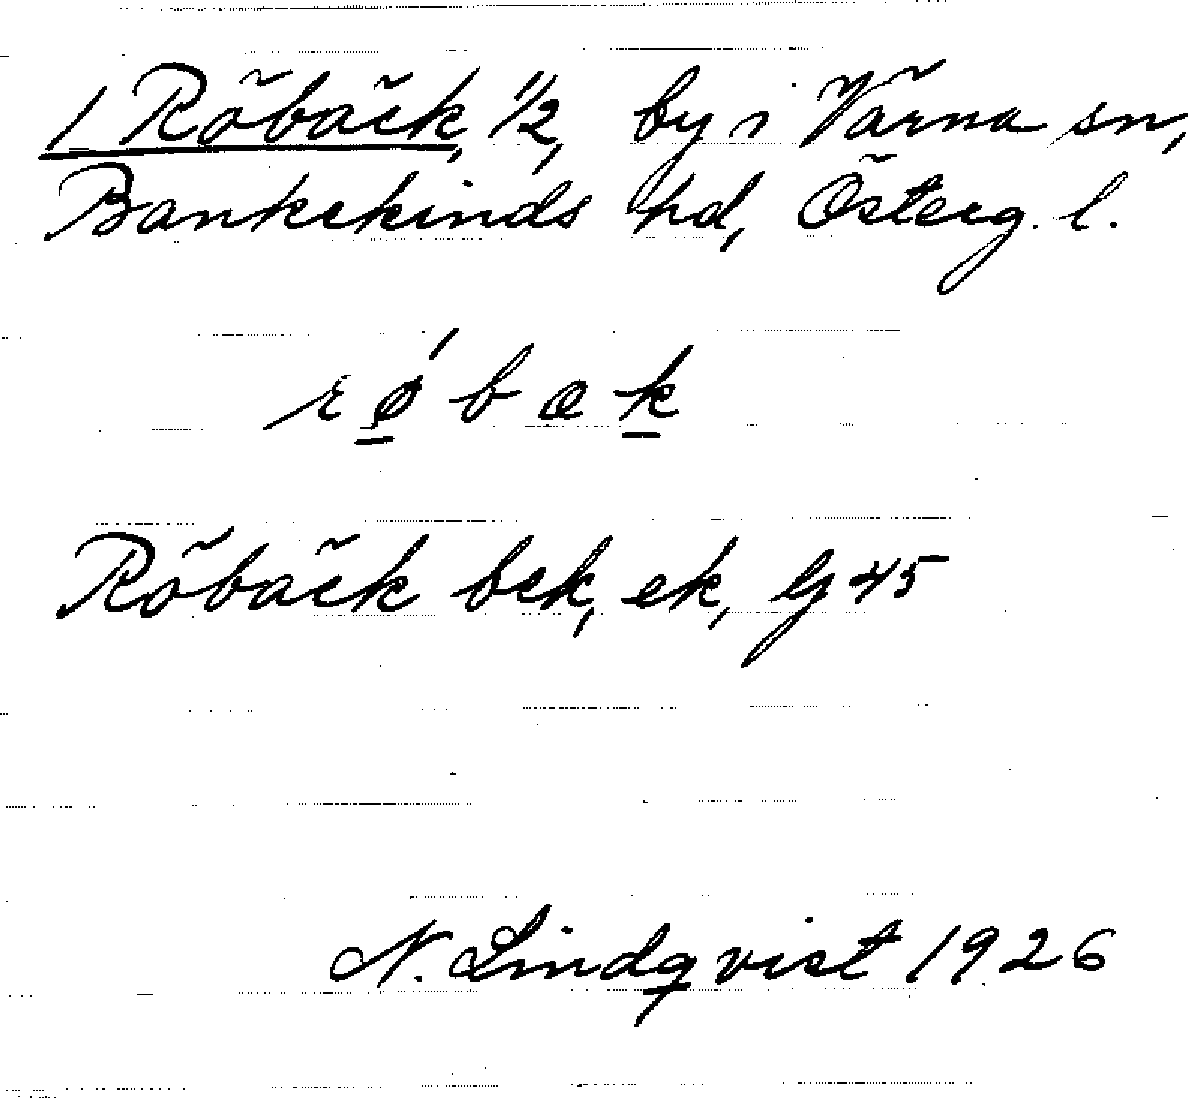 1 Röbäck, 1/2, by i Värna sn,
Bankekinds hd, Österg. l.
rø´bak
Röbäck bek, ek, G 45
N. Lindqvist 1926